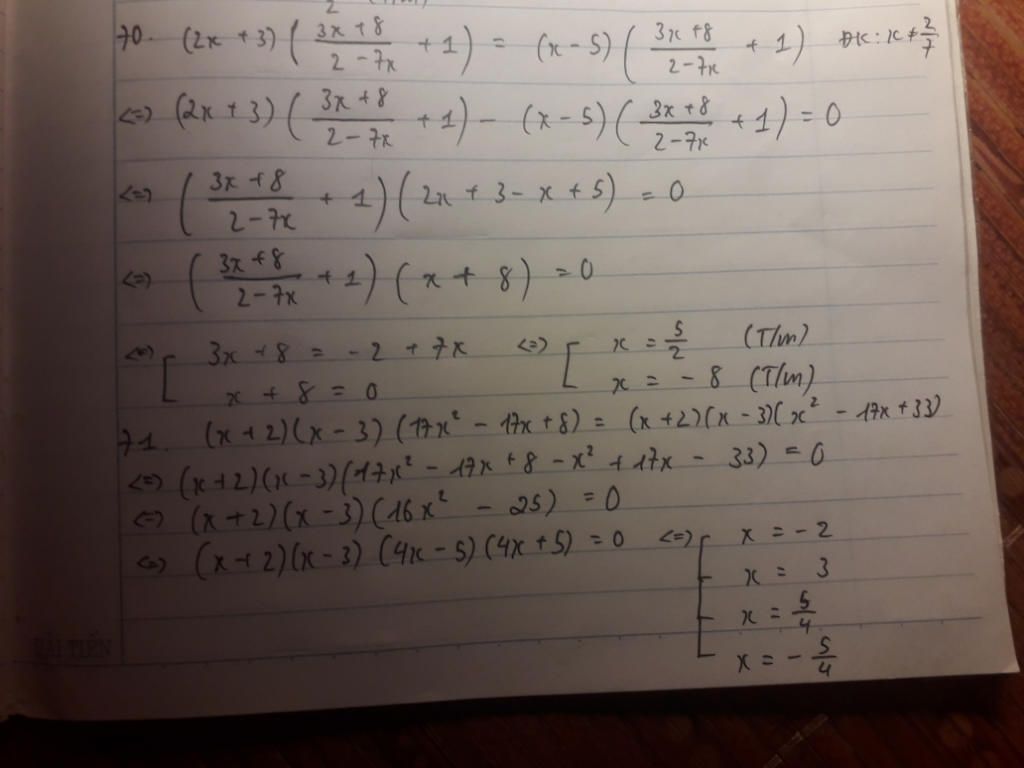 70. (2x + 3) ( \frac{3x + 8}{2 - 7x} + 1 ) = (x - 5) ( \frac{3x + 8}{2 - 7x} + 1 ) ĐK: x ≠ \frac{2}{7}
<=> (2x + 3) ( \frac{3x + 8}{2 - 7x} + 1 ) - (x - 5) ( \frac{3x + 8}{2 - 7x} + 1 ) = 0
<=> ( \frac{3x + 8}{2 - 7x} + 1 ) ( 2x + 3 - x + 5 ) = 0
<=> ( \frac{3x + 8}{2 - 7x} + 1 ) ( x + 8 ) = 0
<=> [ 3x + 8 = -2 + 7x <=> [ x = \frac{5}{2} (T/m)
x + 8 = 0 x = -8 (T/m)
71. (x + 2)(x - 3)(17x² - 17x + 8) = (x + 2)(x - 3)(x² - 17x + 33)
<=> (x + 2)(x - 3)(17x² - 17x + 8 - x² + 17x - 33) = 0
<=> (x + 2)(x - 3)(16x² - 25) = 0
<=> (x + 2)(x - 3)(4x - 5)(4x + 5) = 0 <=> [ x = -2
x = 3
x = \frac{5}{4}
x = -\frac{5}{4}
HẢI TIẾN